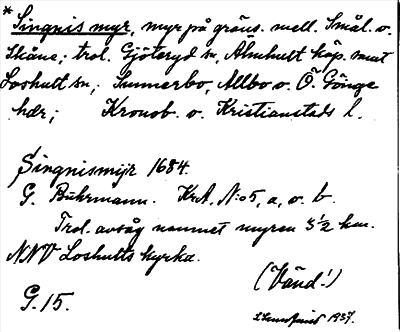 * Singnis myr, myr på gräns. mell. Smål. o.
Skåne; trol. Gjöteryd sn, Älmhult köp. samt
Loshult sn; Sunnerbo, Allbo o. Ö. Göinge
hdr; Kronob. o. Kristianstads l.
Singnismijr 1684.
G. Buhrmann. KrA. N:o 5, a, o. b.
Trol. avsåg namnet myren 3½ km.
NNV Loshults kyrka.
(Vänd!)
G. 15.
1937.